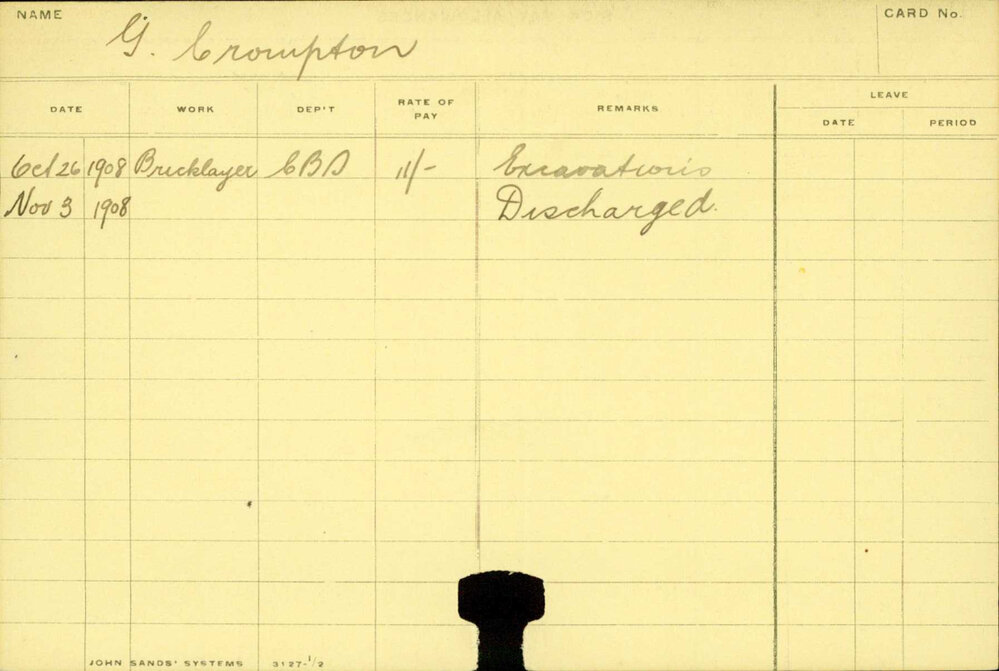 NAME G. Crompton CARD No.
DATE WORK DEP'T RATE OF PAY REMARKS LEAVE
DATE PERIOD
Oct 26 1908 Bricklayer CBD 11/- Excavations
Nov 3 1908 Discharged.
JOHN SANDS' SYSTEMS 3127-1/2